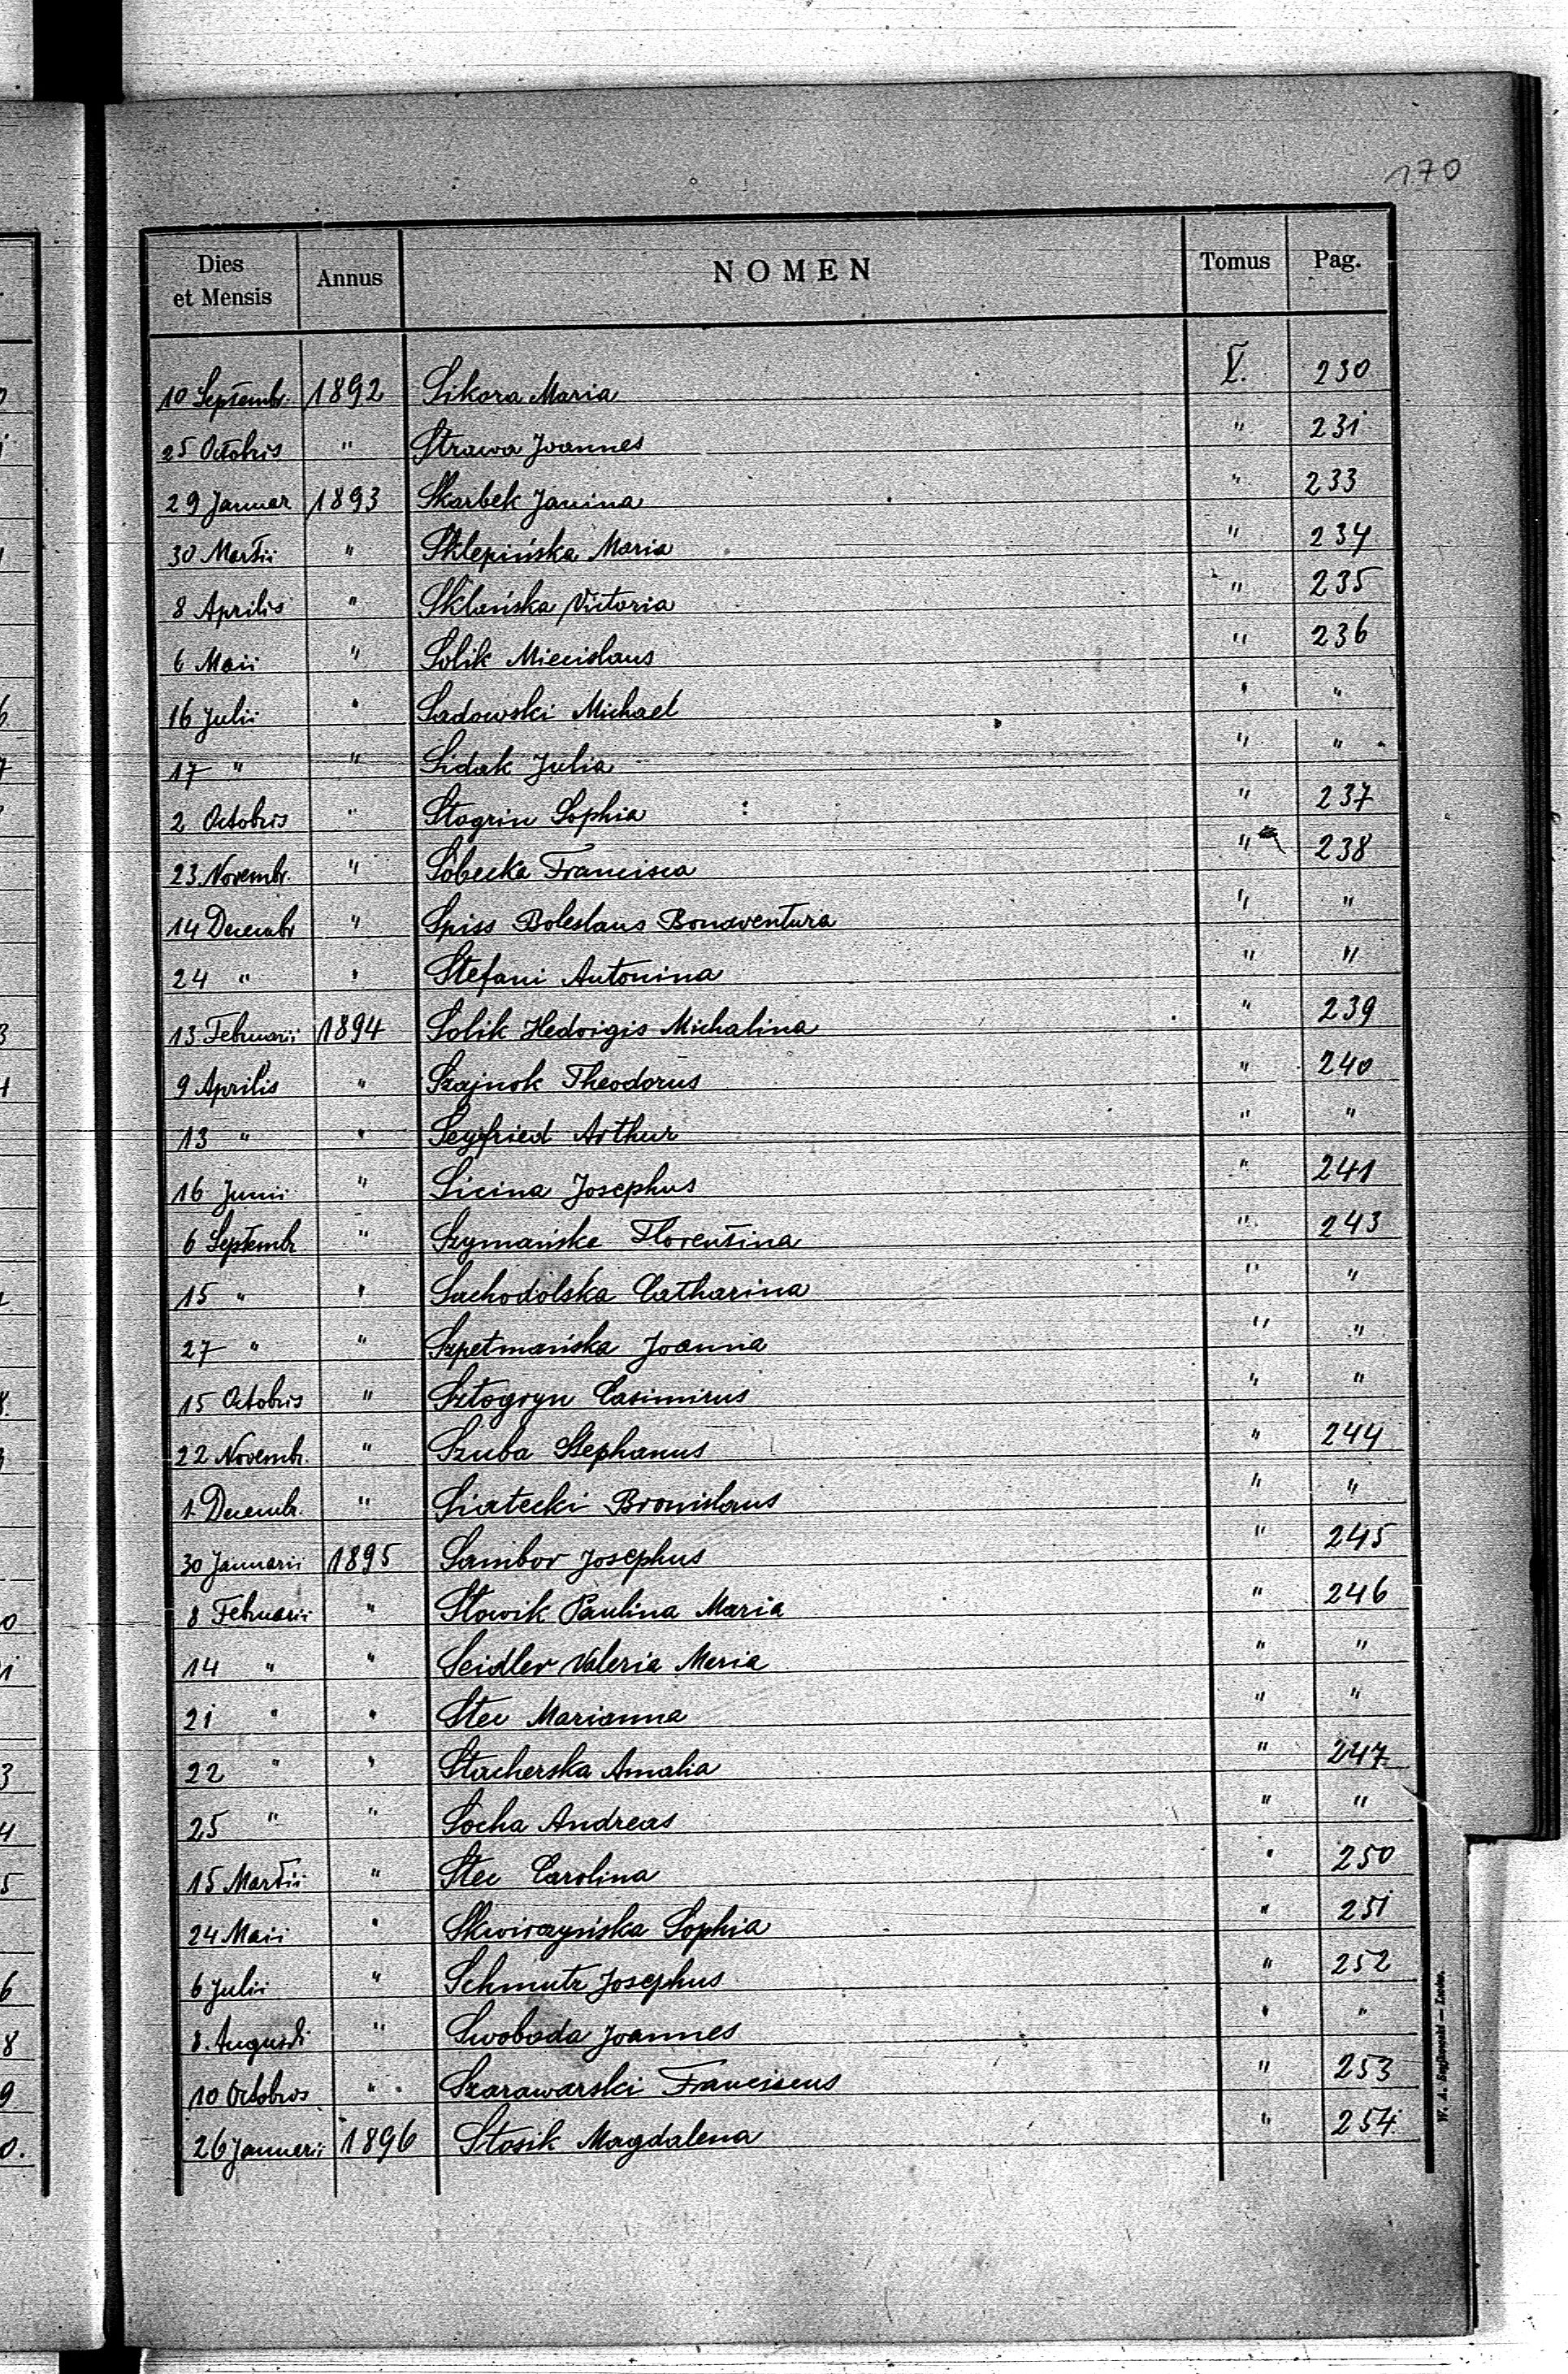 170
Dies et Mensis Annus NOMEN Tomus Pag.
10 Septembr. 1892 Sikora Maria V. 230
25 Octobris " Strawa Joannes " 231
29 Januar 1893 Skarbek Janina " 233
30 Martii " Sklepińska Maria " 234
8 Aprilis " Sklańska Victoria " 235
6 Maii " Solik Miecislaus " 236
16 Julii " Sadowski Michael " "
17 " " Sidak Julia " "
2 Octobris " Stogrin Sophia " 237
23 Novembr. " Sobecka Francisca " 238
14 Decembr " Spiss Boleslaus Bonaventura " "
24 " " Stefani Antonina " "
13 Februarii 1894 Solik Hedvigis Michalina " 239
9 Aprilis " Szajnok Theodorus " 240
13 " " Segfried Arthur " "
16 Junii " Sicina Josephus " 241
6 Septembr " Szymańska Florentina " 243
15 " " Suchodolska Catharina " "
27 " " Szpetmańska Joanna " "
15 Octobris " Sztogryn Casimirus " "
22 Novembr. " Szuba Stephanus " 244
1 Decembr. " Siatecki Bronislaus " "
30 Januarii 1895 Sambor Josephus " 245
8 Februarii " Słowik Paulina Maria " 246
14 " " Seidler Valeria Maria " "
21 " " Stec Marianna " "
22 " " Stacherska Amalia " 247
25 " " Socha Andreas " "
15 Martii " Stec Carolina " 250
24 Maii " Skwirczyńska Sophia " 251
6 Julii " Schmutz Josephus " 252
8. Augusti " Swoboda Joannes " "
10 Octobris " Szarawarski Franciscus " 253
26 Januarii 1896 Stasik Magdalena " 254